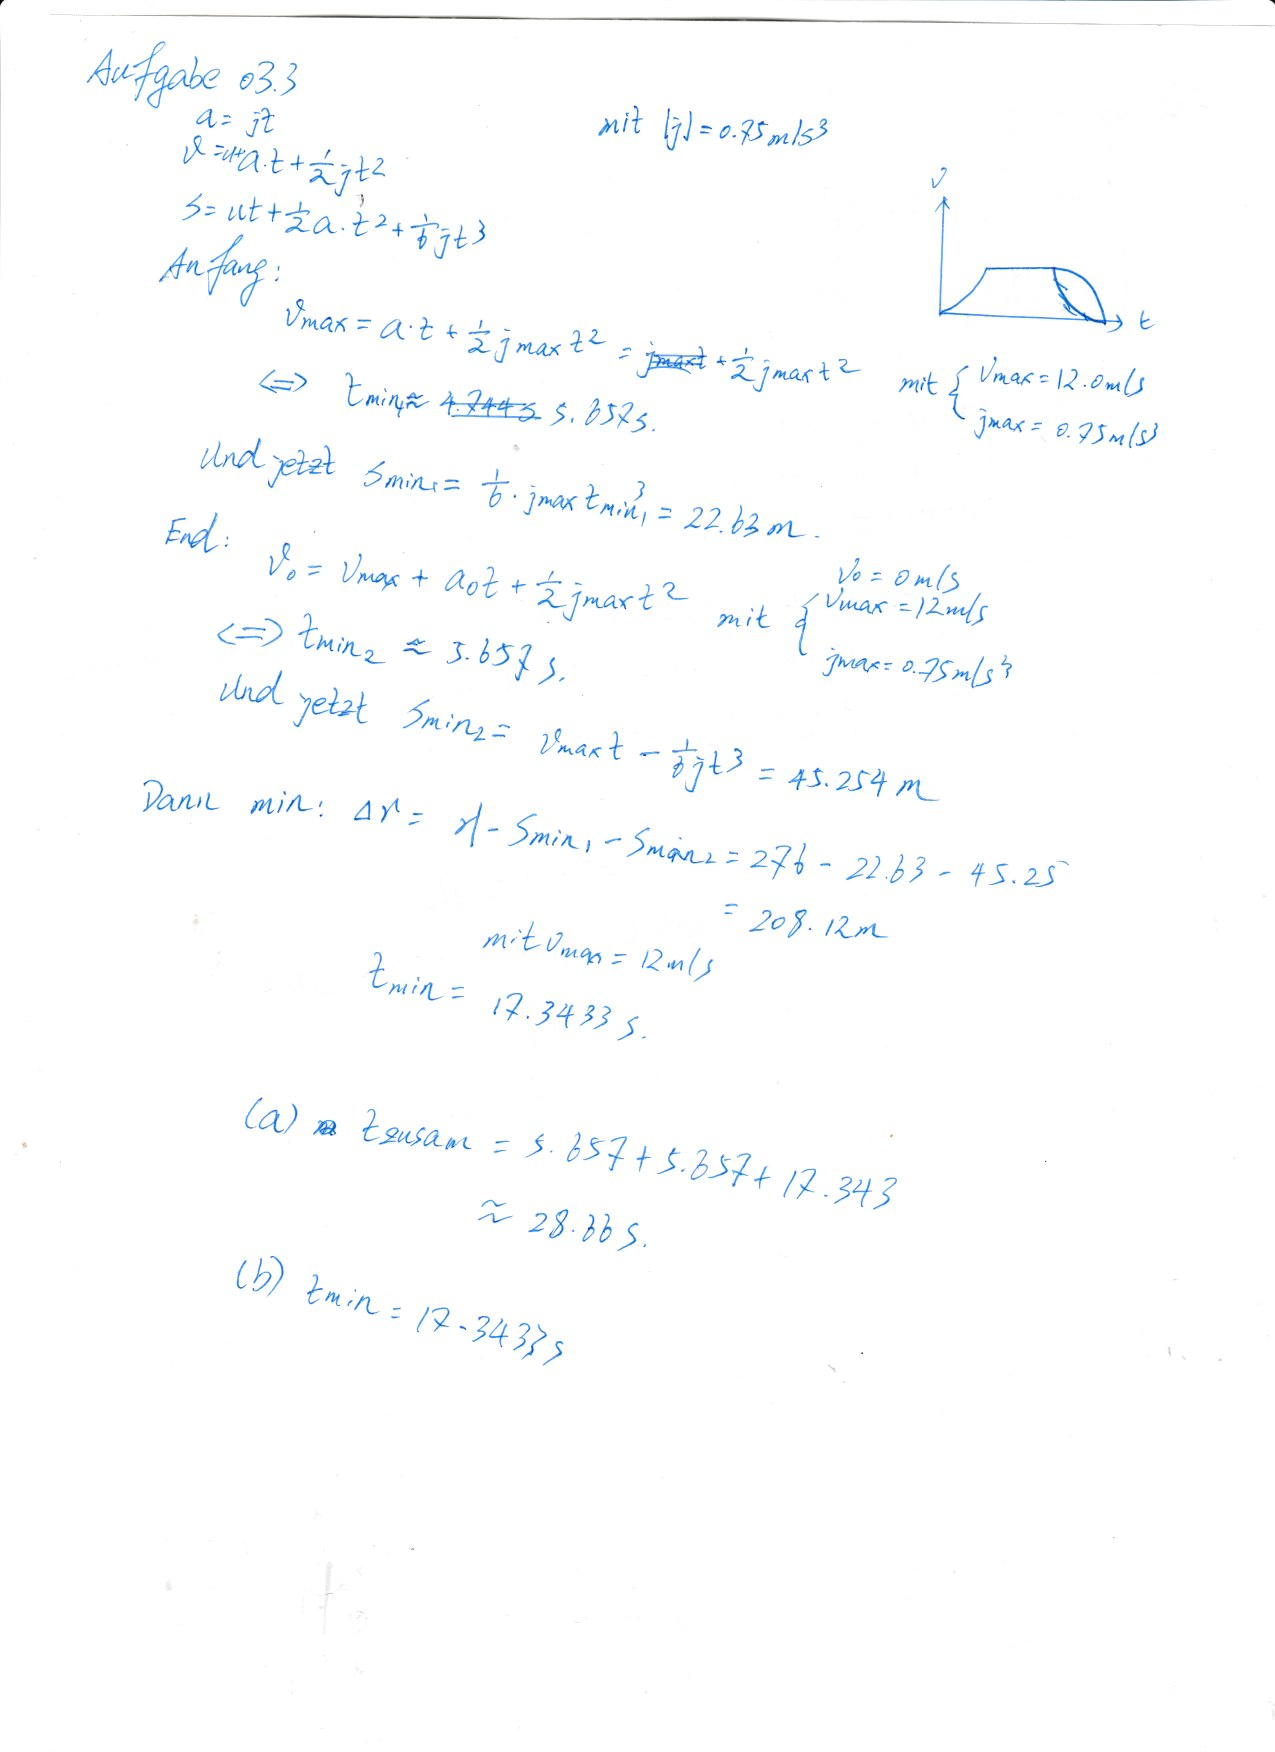 Aufgabe 03.3
a = jt
mit |j| = 0.75 m/s³
v = u+a·t + 1/2 jt²
s = ut + 1/2 a·t² + 1/6 jt³
v
t
Anfang:
vmax = a·t + 1/2 jmax t² = jmaxt + 1/2 jmax t² mit { vmax = 12.0 m/s
jmax = 0.75 m/s³
<=> tmin1 ≈ 4.744 s 5.657 s.
Und jetzt smin1 = 1/6 · jmax tmin1³ = 22.63 m.
End:
v0 = vmax + a0t + 1/2 jmax t² mit { v0 = 0 m/s
vmax = 12 m/s
jmax = 0.75 m/s³
<=> tmin2 ≈ 5.657 s.
Und jetzt smin2 = vmax t - 1/6 jt³ = 45.254 m
Dann min: Δr = r - smin1 - smin2 = 276 - 22.63 - 45.25
= 208.12 m
mit vmax = 12 m/s
tmin = 17.3433 s.
(a) tzusam = 5.657 + 5.657 + 17.343
≈ 28.66 s.
(b) tmin = 17.3433 s